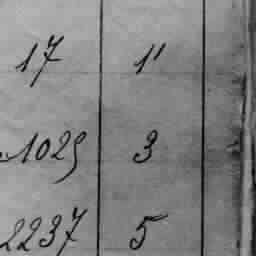 17 1"
1029 3
2237 5